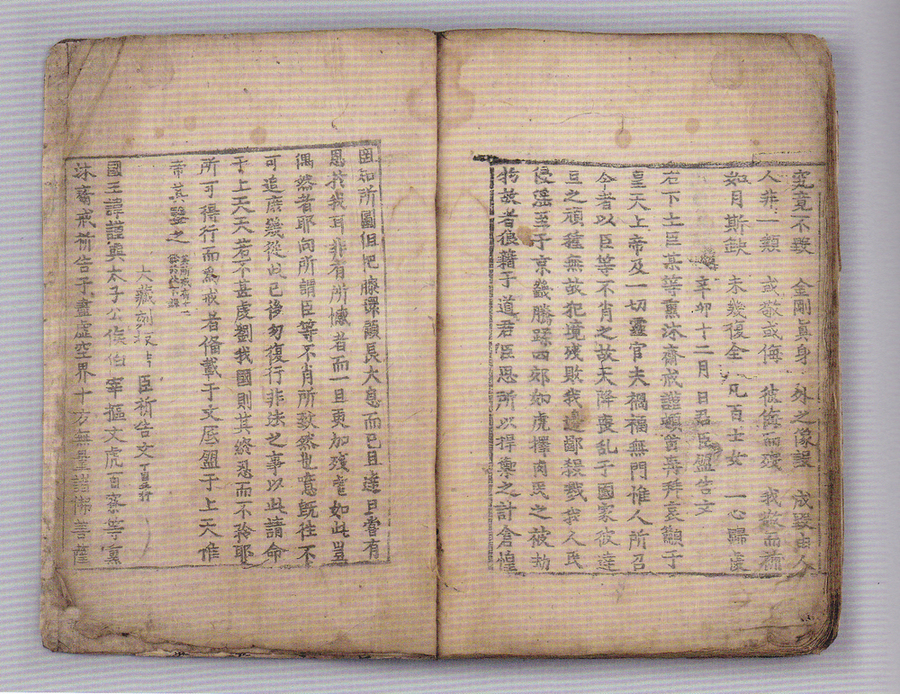 究竟不毀 金剛眞身 外之像設 成毀由人
人非一類 或敬或侮 彼侮而殘 我敬而補
如月斯缺 未幾復全 凡百士女 一心歸虔
辛卯十二月日君臣盟告文
右下土臣某等熏沐齋戒謹頓首再拜哀籲于
皇天上帝及一切靈官夫禍福無門惟人所召
今者以臣等不肖之故天降喪亂于國家彼達
旦之頑種無故犯境殘敗我邊鄙殺戮我人民
侵淫至于京畿騰蹂四郊如虎擇肉民之被劫
物故者狼藉于道君臣思所以捍禦之計倉惶
罔知所圖但抱膝環顧長大息而已且達旦嘗有
恩於我耳非有所憾者而一旦更加殘虐如此豈
偶然者耶向所謂臣等不肖所致然也噫旣往不
可追庶幾從此已後勿復行非法之事以此請命
于上天天若不甚虔劉我國則其終忍而不矜耶
所可得行而爲戒者備載于文歷盟于上天惟
帝其鑒之
大藏刻板君臣祈告文 丁酉年行
國王諱謹與太子公侯伯宰樞文虎百寮等熏
沐齋戒祈告于盡虛空界十方無量諸佛菩薩